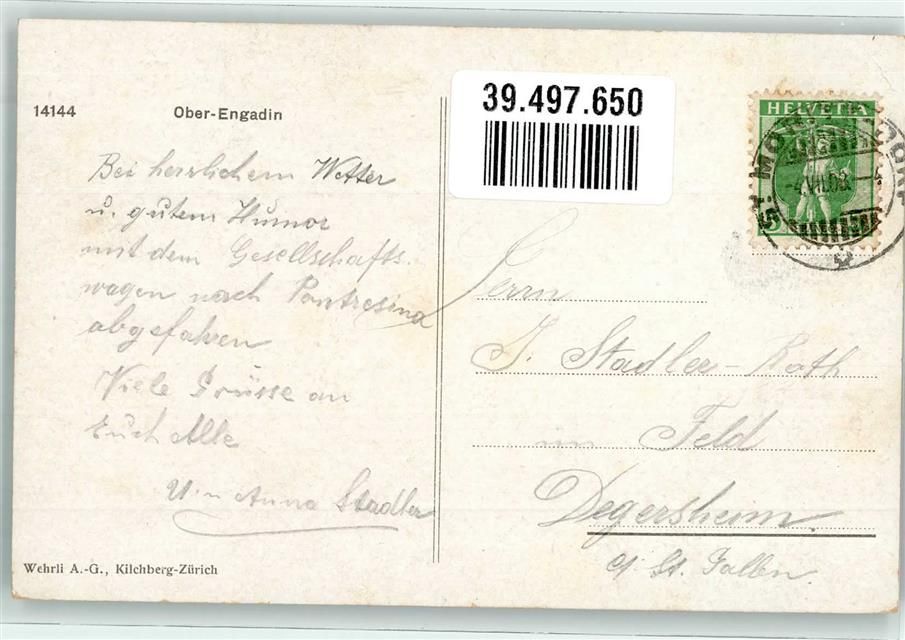 14144 Ober-Engadin
Bei herrlichem Wetter
u. gutem Humor
mit dem Gesellschafts
wagen nach Pontresina
abgefahren
Viele Grüsse an
Euch Alle
Anna Stadler
Wehrli A.-G., Kilchberg-Zürich
39.497.650
HELVETIA
ST. MORITZ DORF
Herrn
J. Stadler-Roth
im Feld
Degersheim.
St. Gallen.